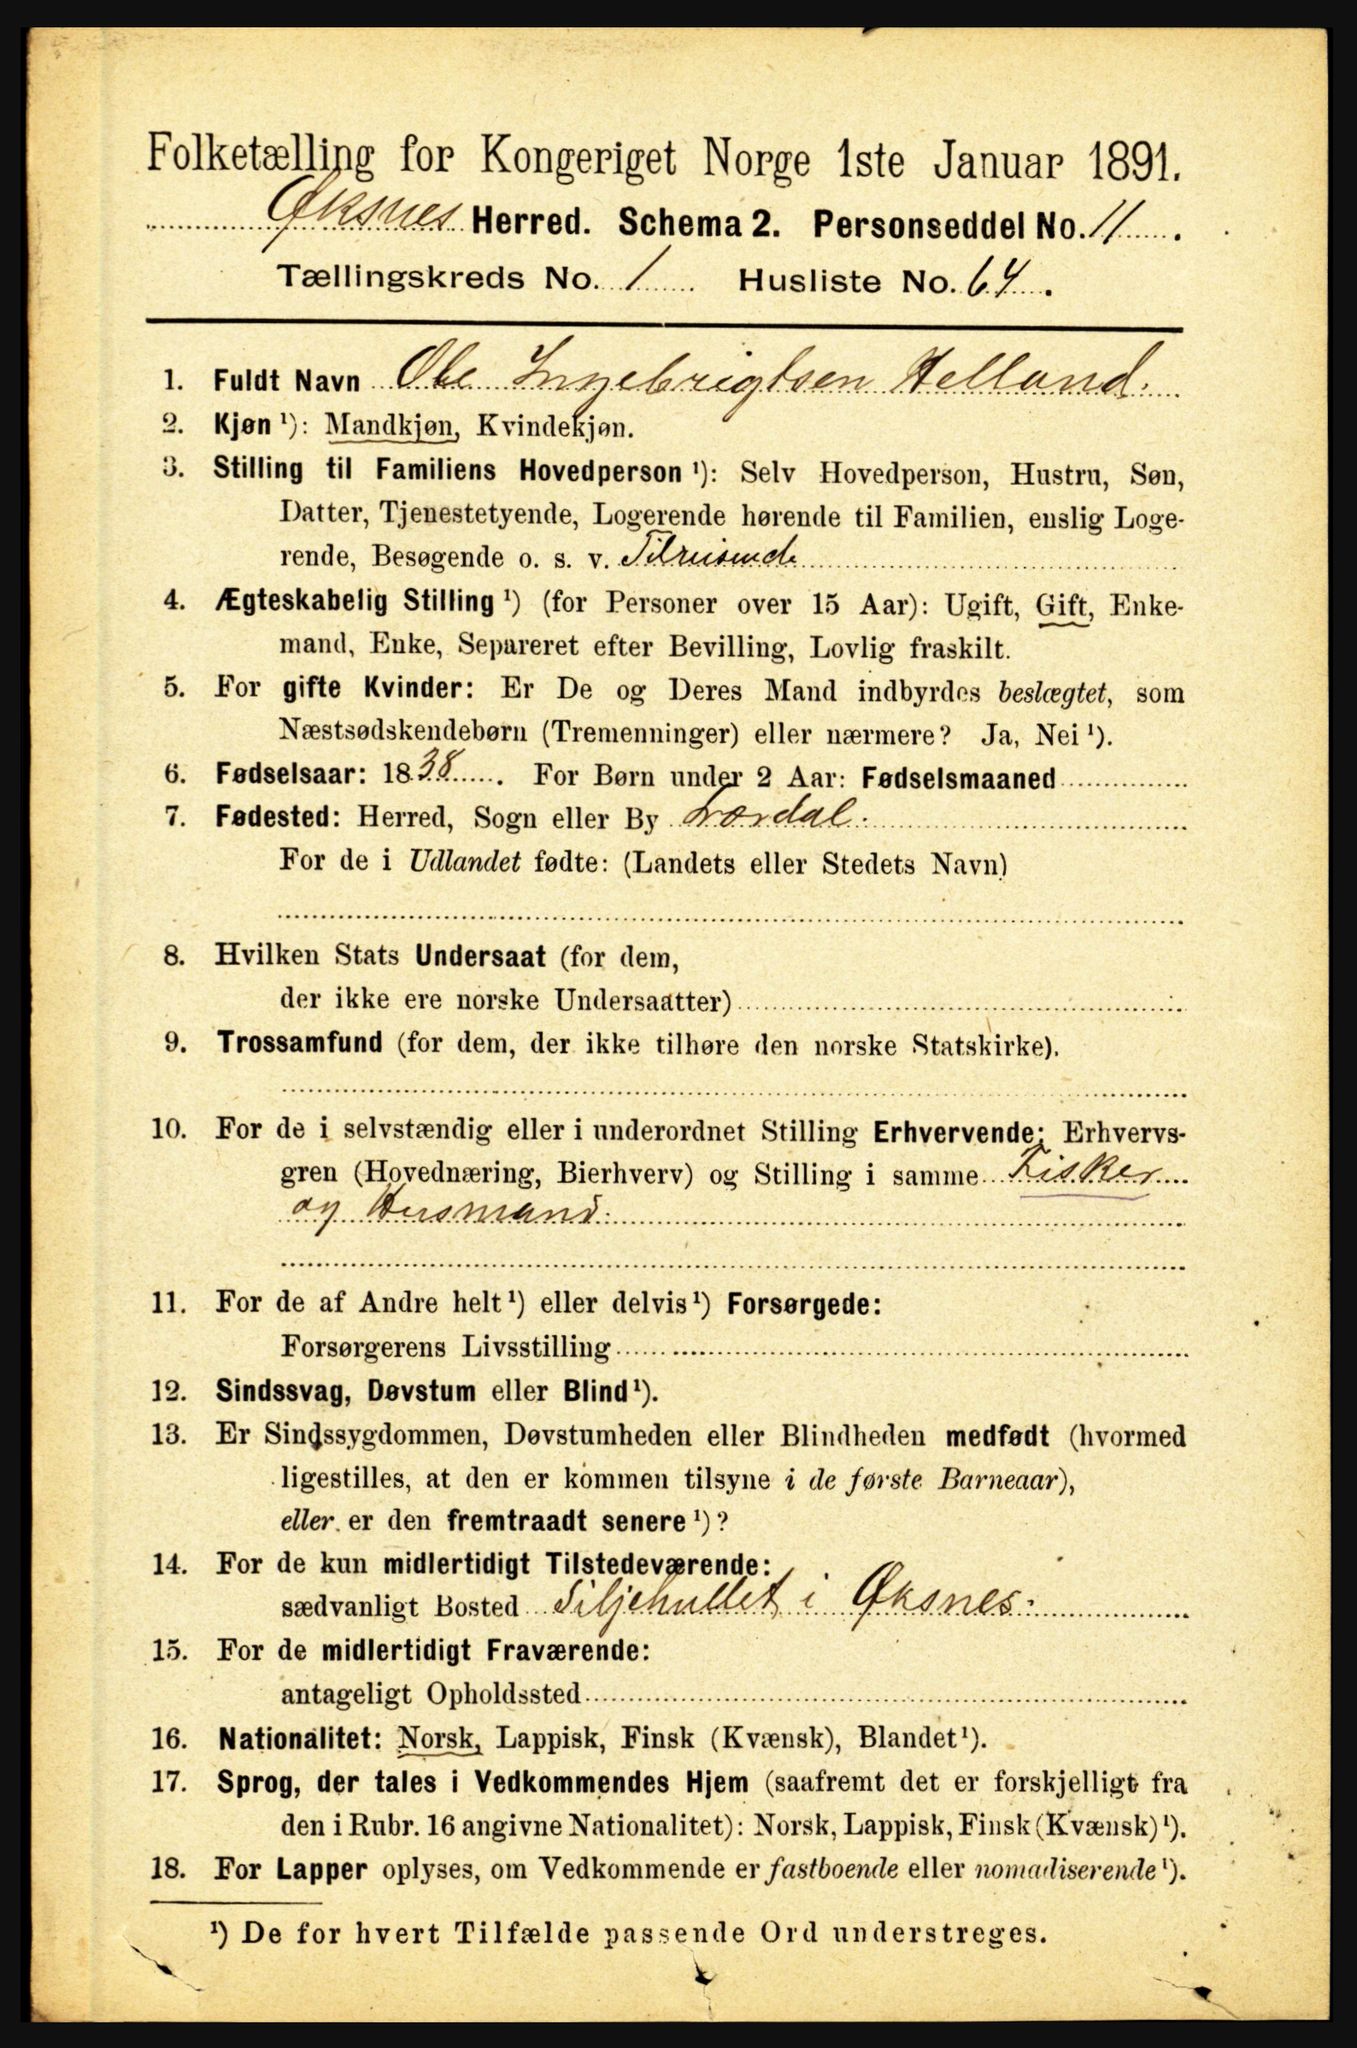 Folketælling for Kongeriget Norge 1ste Januar 1891.
Øksnes Herred. Schema 2. Personseddel No. 11.
Tællingskreds No. 1 Husliste No. 64.
1. Fuldt Navn Ole Ingebrigtsen Helland.
2. Kjøn ¹): Mandkjøn, Kvindekjøn.
3. Stilling til Familiens Hovedperson ¹): Selv Hovedperson, Hustru, Søn,
Datter, Tjenestetyende, Logerende hørende til Familien, enslig Loge-
rende, Besøgende o. s. v. Tilreisende
4. Ægteskabelig Stilling ¹) (for Personer over 15 Aar): Ugift, Gift, Enke-
mand, Enke, Separeret efter Bevilling, Lovlig fraskilt.
5. For gifte Kvinder: Er De og Deres Mand indbyrdes beslægtet, som
Næstsødskendebørn (Tremenninger) eller nærmere? Ja, Nei ¹).
6. Fødselsaar: 1838. For Børn under 2 Aar: Fødselsmaaned
7. Fødested: Herred, Sogn eller By Lærdal.
For de i Udlandet fødte: (Landets eller Stedets Navn)
8. Hvilken Stats Undersaat (for dem,
der ikke ere norske Undersaatter)
9. Trossamfund (for dem, der ikke tilhøre den norske Statskirke).
10. For de i selvstændig eller i underordnet Stilling Erhvervende: Erhvervs-
gren (Hovednæring, Bierhverv) og Stilling i samme Fisker
og Husmand.
11. For de af Andre helt ¹) eller delvis ¹) Forsørgede:
Forsørgerens Livsstilling
12. Sindssvag, Døvstum eller Blind ¹).
13. Er Sindssygdommen, Døvstumheden eller Blindheden medfødt (hvormed
ligestilles, at den er kommen tilsyne i de første Barneaar),
eller er den fremtraadt senere ¹)?
14. For de kun midlertidigt Tilstedeværende:
sædvanligt Bosted Siljehullet i Øksnes.
15. For de midlertidigt Fraværende:
antageligt Opholdssted
16. Nationalitet: Norsk, Lappisk, Finsk (Kvænsk), Blandet ¹).
17. Sprog, der tales i Vedkommendes Hjem (saafremt det er forskjelligt fra
den i Rubr. 16 angivne Nationalitet): Norsk, Lappisk, Finsk (Kvænsk) ¹).
18. For Lapper oplyses, om Vedkommende er fastboende eller nomadiserende ¹).
¹) De for hvert Tilfælde passende Ord understreges.